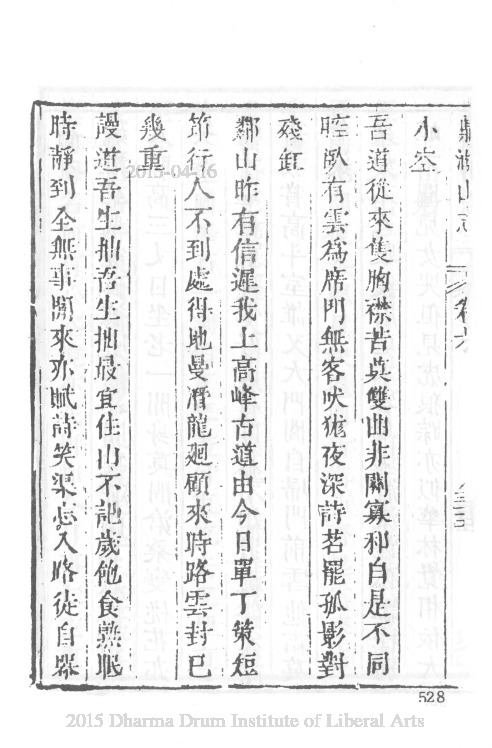 鵞湖山志 卷六
小崆
吾道從來隻胸襟苦莫雙曲非關寡和自是不同
腔臥有雲為席門無客吠狵夜深詩茗罷孤影對
殘缸
鄰山昨有信遲我上高峰古道由今日單丁策短
笻行人不到處得地曼潛龍廻顧來時路雲封已
幾重
謾道吾生拙吾生拙最宜住山不記歲飽食熟眠
時靜到全無事閒來亦賦詩笑渠忘入路徒自
528
2015-04-16
2015 Dharma Drum Institute of Liberal Arts